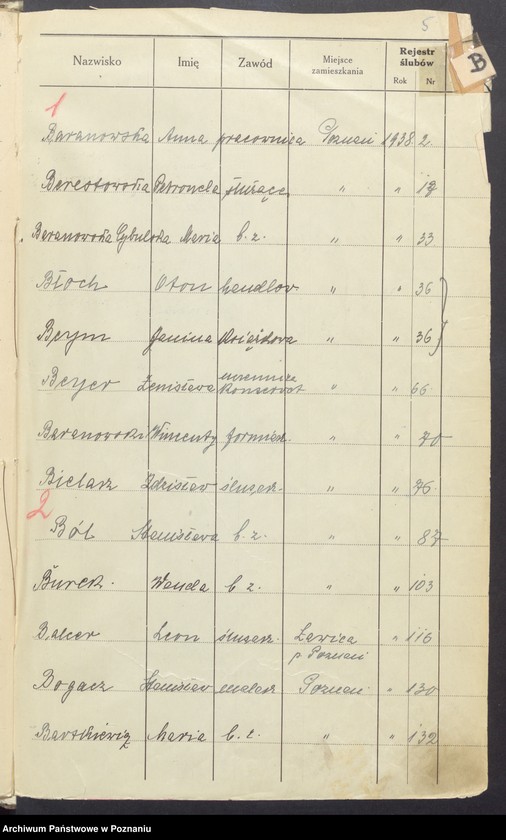 5
B
Nazwisko Imię Zawód Miejsce zamieszkania Rejestr ślubów Rok Nr
1
Baranowska Anna pracownica Poznań 1938 2
Berestowska Petronela służąca " " 12
Baranowska Cybulska Maria b. z. " " 33
Błoch Oton handlov " " 36
Beym Janina Książkowa " " 36
Beyer Zenisława uczennica Konserwat " " 66
Baranowski Wincenty formierz " " 70
Bielarz Zdzisław ślusarz " " 76
2
Ból Stanisława b. z. " " 87
Burek Wanda b. z. " " 103
Balcer Leon ślusarz Ławica " 116
p. Poznań
Bogacz Stanisław malarz Poznań " 130
Bartkiewicz Maria b. z. " " 132
Archiwum Państwowe w Poznaniu